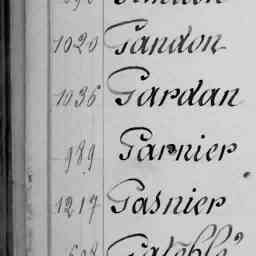 1020 Gandon
1036 Gardan
989 Garnier
1217 Gasnier